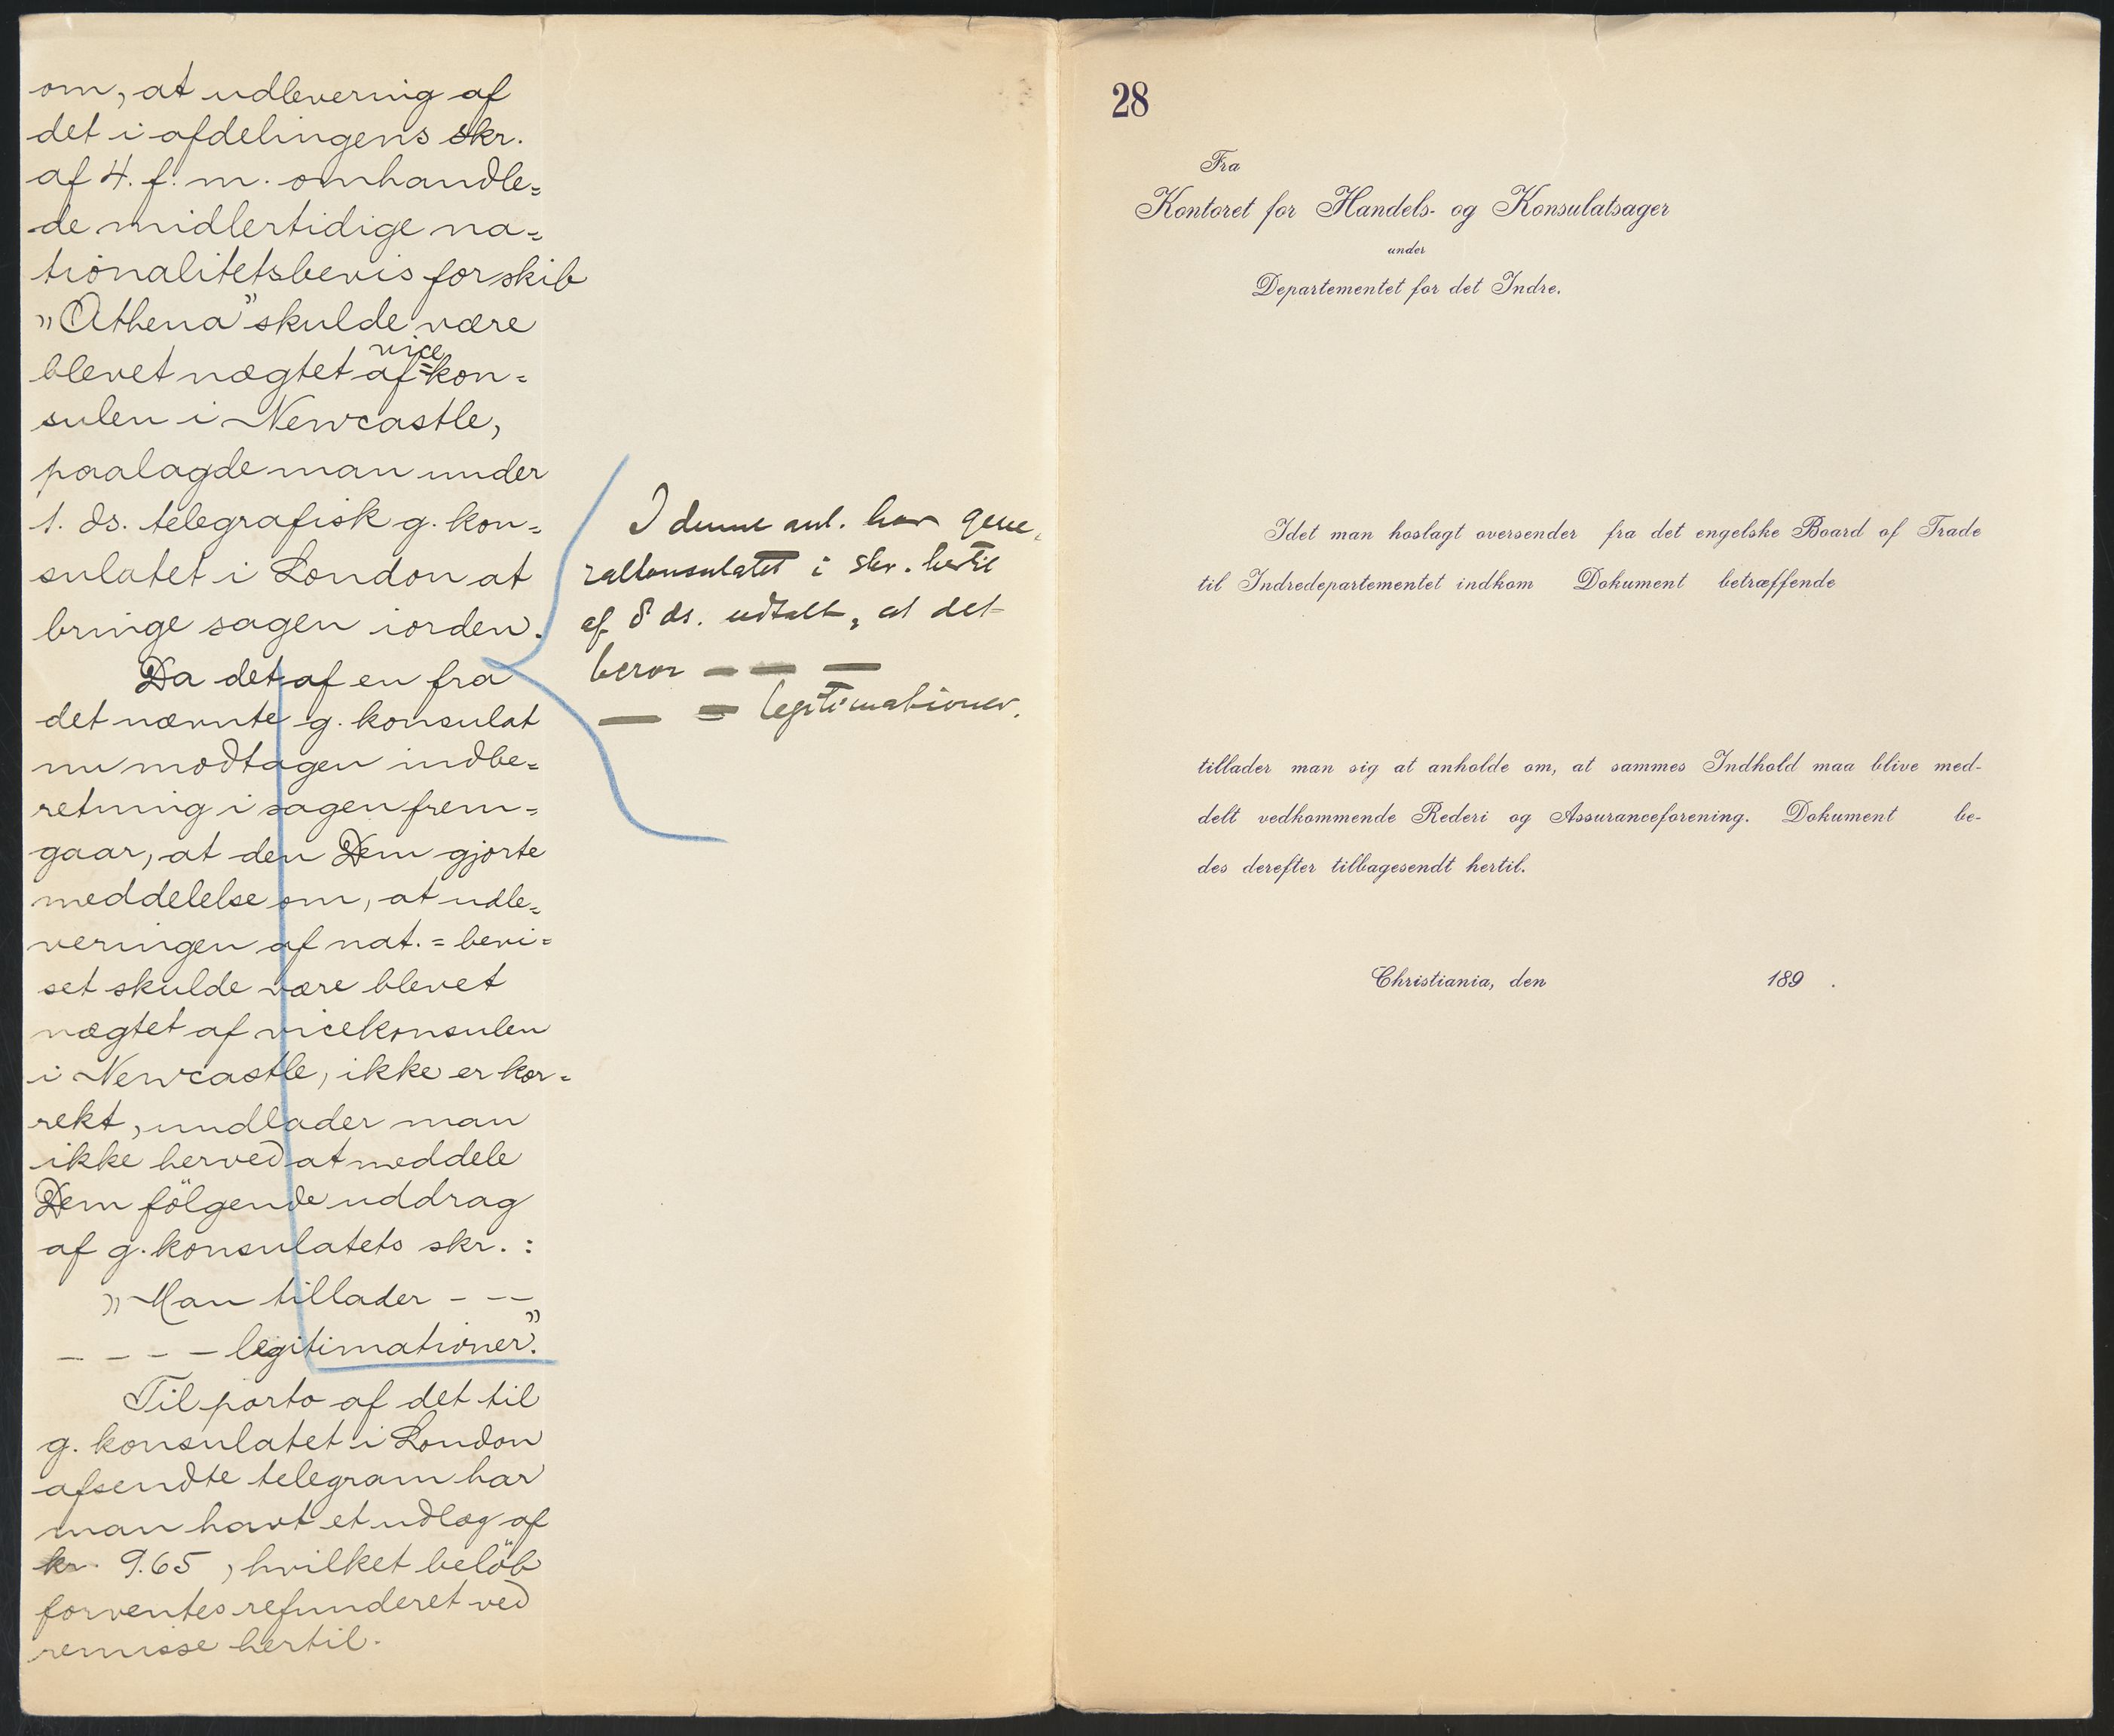 om, at udlevering af
det i afdelingens skr.
af 4. f. m. omhandle=
de midlertidige na=
tionalitetsbevis for skib
"Athena" skulde være
blevet nægtet af vice=kon=
sulen i Newcastle,
paalagde man under
1. ds. telegrafisk g. kon=
sulatet i London at
bringe sagen i orden.
Da det af en fra
det nævnte g. konsulat
nu modtagen indbe=
retning i sagen frem=
gaar, at den Dem gjorte
meddelelse om, at udle=
veringen af nat.=bevi=
set skulde være blevet
nægtet af vicekonsulen
i Newcastle, ikke er kor=
rekt, undlader man
ikke herved at meddele
Dem fölgende uddrag
af g. konsulatets skr.:
"Man tillader - - -
- - - - legitimationer."
Til porto af det til
g. konsulatet i London
afsendte telegram har
man havt et udlæg af
kr. 9.65, hvilket belöb
forventes refunderet ved
remisse hertil.
I denne anl. har gene=
ralkonsulatet i skr. hertil
af 8 ds. udtalt, at det
beror — — —
— — legitimationer.
28
Fra
Kontoret for Handels- og Konsulatsager
under
Departementet for det Indre.
Idet man hoslagt oversender fra det engelske Board of Trade
til Indredepartementet indkom Dokument betræffende
tillader man sig at anholde om, at sammes Indhold maa blive med-
delt vedkommende Rederi og Assuranceforening. Dokument be-
des derefter tilbagesendt hertil.
Christiania, den 189 .